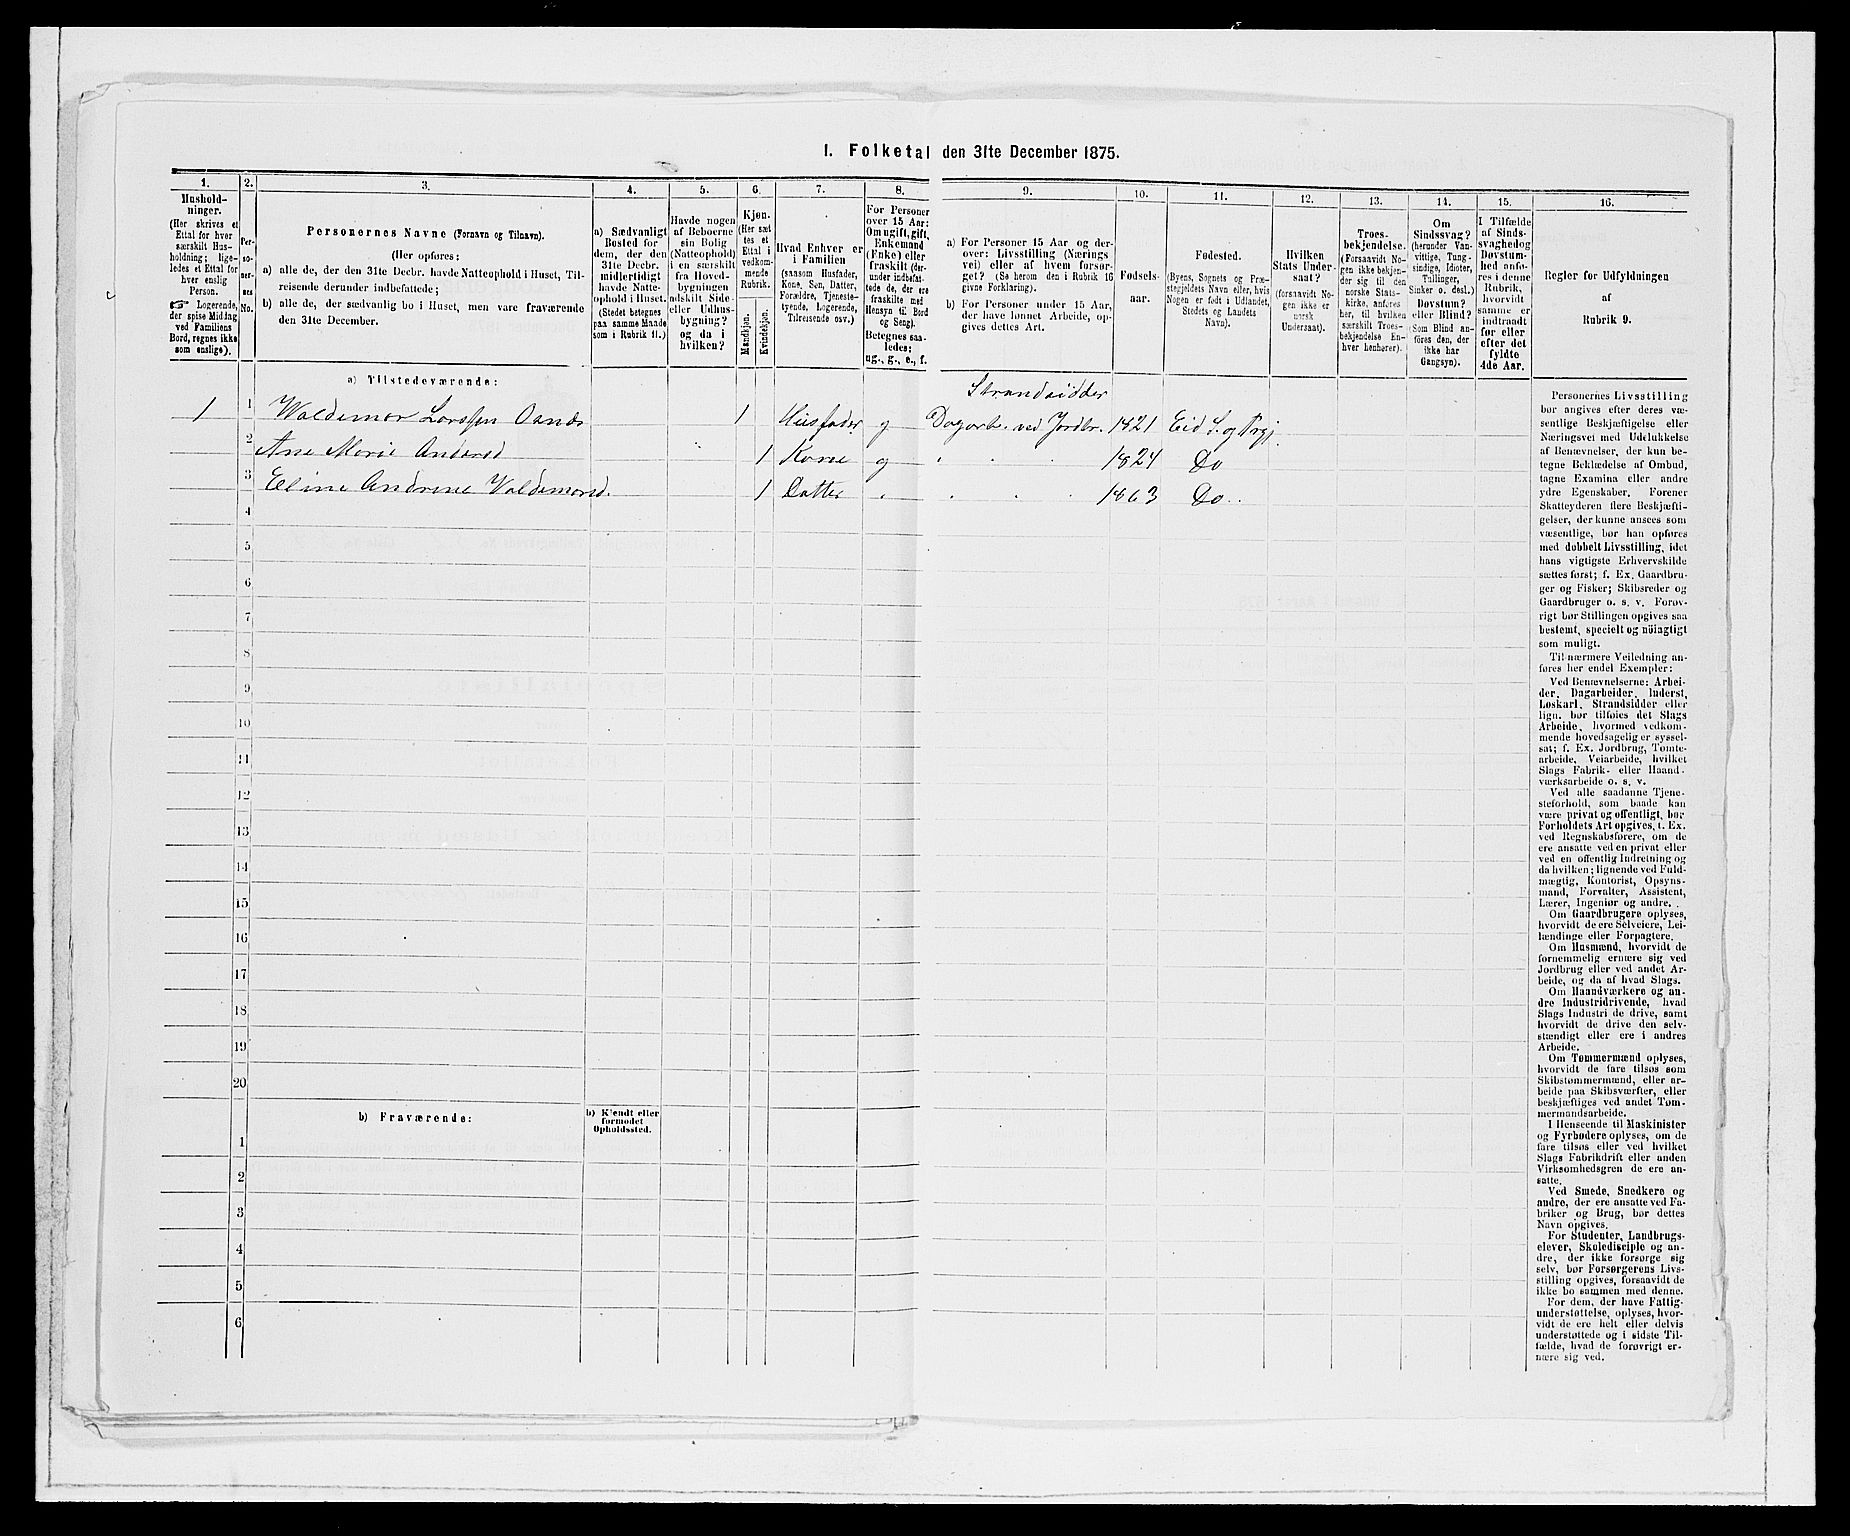 I. Folketal den 31te December 1875.
1.
Hushold-
ninger.
(Her skrives et
Ettal for hver
særskilt Hus-
holdning; lige-
ledes et Ettal for
hver enslig
Person.
☞ Logerende,
der spise Middag
ved Familiens
Bord, regnes ikke
som enslige).
2.
Per-
so-
ner-
nes
No.
3.
Personernes Navne (Fornavn og Tilnavn).
(Her opføres:
a) alle de, der den 31te Decbr. havde Natteophold i Huset, Til-
reisende derunder indbefattede;
b) alle de, der sædvanlig bo i Huset, men vare fraværende
den 31te December.
4.
a) Sædvanligt
Bosted for
dem, der den
31te Decbr.
midlertidigt
havde Natte-
ophold i Huset.
(Stedet betegnes
paa samme Maade
som i Rubrik 11.)
5.
Havde nogen
af Beboerne
sin Bolig
(Natteophold)
i en særskilt
fra Hoved-
bygningen
adskilt Side-
eller Udhus-
bygning?
og da i
hvilken?
6.
Kjøn.
(Her sæt
tes et
Ettal i
vedkom-
mende
Rubrik.
Mandkjøn.
Kvindekjøn.
7.
Hvad Enhver er
i Familien
(saasom Husfader,
Kone, Søn, Datter,
Forældre, Tjeneste-
tyende, Logerende,
Tilreisende osv.)
8.
For Personer
over 15 Aar:
Om ugift, gift,
Enkemand
(Enke) eller
fraskilt (der-
under indbefat-
tede de, der ere
fraskilte med
Hensyn til Bord
og Seng).
Betegnes saa-
ledes:
ug., g., e., f.
9.
a) For Personer 15 Aar og der-
over: Livsstilling (Nærings
vei) eller af hvem forsør-
get? (Se herom den i Rubrik 16
givne Forklaring).
b) For Personer under 15 Aar,
der have lønnet Arbeide, op-
gives dettes Art.
10.
Fødsels-
aar.
11.
Fødested.
(Byens, Sognets og Præ-
stegjeldets Navn eller, hvis
Nogen er født i Udlandet,
Stedets og Landets
Navn).
12.
Hvilken
Stats Under-
saat?
(forsaavidt No-
gen ikke er
norsk
Undersaat).
13.
Troes-
bekjendelse.
(Forsaavidt No-
gen ikke bekjen-
der sig til den
norske Stats-
kirke, anføres
her, til hvilken
særskilt Troes-
bekjendelse En-
hver henhører).
14.
Om
Sindssvag?
(herunder Van-
vittige, Tung-
sindige, Idioter,
Tullinger,
Sinker o. desl.)
Døvstum?
eller Blind?
(Som Blind an-
føres den, der
ikke har
Gangsyn).
15.
I Tilfælde
af Sinds-
svaghed og
Døvstum-
hed anfø-
res i denne
Rubrik,
hvorvidt
samme er
indtraadt
før eller
efter det
fyldte
4de Aar.
16.
Regler for Udfyldningen
af
Rubrik 9.
a) Tilstedeværende:
Strandsidder
1 1 Waldemar Larssen 1 Husfader g Dagarb. ved Jordbr. 1821 Eid S. og Prgj.
2 Ane Marie Andersd 1 Kone g " " " 1824 Do
3 Eline Andrine Waldemarsd. 1 Datter " " " " 1863 Do..
4
5
6
7
8
9
10
11
12
13
14
15
16
17
18
19
20
b) Fraværende:
b) Kjendt eller
formodet
Opholdssted.
1
2
3
4
5
6
Personernes Livsstilling
bør angives efter deres væ-
sentlige Beskjæftigelse eller
Næringsvei med Udelukkelse
af Benævnelser, der kun be-
tegne Beklædelse af Ombud,
tagne Examina eller andre
ydre Egenskaber. Forener
Skatteyderen flere Beskjæfti-
gelser, der kunne ansees som
væsentlige, bør han opføres
med dobbelt Livsstilling, idet
hans vigtigste Erhvervskilde
sættes først; f. Ex. Gaardbru-
ger og Fisker; Skibsreder og
Gaardbruger o. s. v. Forøv-
rigt bør Stillingen opgives saa
bestemt, specielt og nøiagtigt
som muligt.
Til nærmere Veiledning an-
føres her endel Exempler:
Ved Benævnelserne: Arbei-
der, Dagarbeider, Inderst,
Løskarl, Strandsidder eller
lign. bør tilføies det Slags
Arbeide, hvormed vedkom-
mende hovedsagelig er syssel-
sat; f. Ex. Jordbrug, Tomte-
arbeide, Veiarbeide, hvilket
Slags Fabrik- eller Haand-
værksarbeide o. s. v.
Ved alle saadanne Tjene-
steforhold, som baade kan
være privat og offentligt, bør
Forholdets Art opgives, f. Ex.
ved Regnskabsførere, om de
ere ansatte ved en privat eller
ved en offentlig Indretning og
da hvilken; lignende ved Fuld-
mægtig, Kontorist, Opsyns-
mand, Forvalter, Assistent,
Lærer, Ingeniør og andre.
Om Gaardbrugere oplyses,
hvorvidt de ere Selveiere, Lei-
lændinge eller Forpagtere.
Om Husmænd, hvorvidt de
fornemmelig ernære sig ved
Jordbrug eller ved andet Ar-
beide, og da af hvad Slags.
Om Haandværkere og an-
dre Industridrivende, hvad
Slags Industri de drive, samt
hvorvidt de drive den selv-
stændigt eller ere i andres
Arbeide.
Om Tømmermænd oplyses,
hvorvidt de fare tilsøs som
Skibstømmermænd, eller ar-
beide paa Skibsværfter, eller
beskjæftiges ved andet Tøm-
mermandsarbeide.
I Henseende til Maskinister
og Fyrbødere oplyses, om de
fare tilsøs eller ved hvilket
Slags Fabrikdrift eller anden
Virksomhedsgren de ere an-
satte.
Ved Smede, Snedkere og
andre, der ere ansatte ved Fa-
briker og Brug, bør dettes
Navn opgives.
For Studenter, Landbrugs-
elever, Skoledisciple og an-
dre, der ikke forsørge sig
selv, bør Forsørgerens Livs-
stilling opgives, forsaavidt de
ikke bo sammen med denne.
For dem, der have Fattig-
understøttelse, oplyses, hvor-
vidt de ere helt eller delvis
understøttede og i sidste Til-
fælde, hvad de forøvrigt er-
nære sig ved.